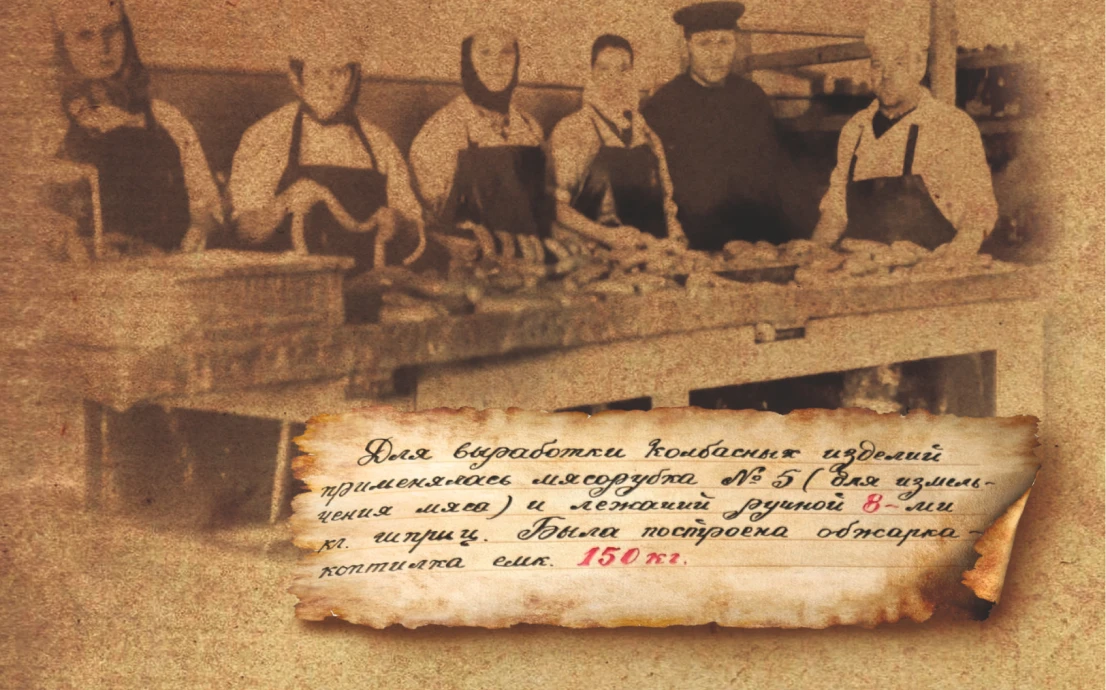 Для выработки колбасных изделий
применялась мясорубка № 5 (для измель-
чения мяса) и лежачий ручной 8-ми
кг. шприц. Была построена обжарка-
коптилка емк. 150 кг.